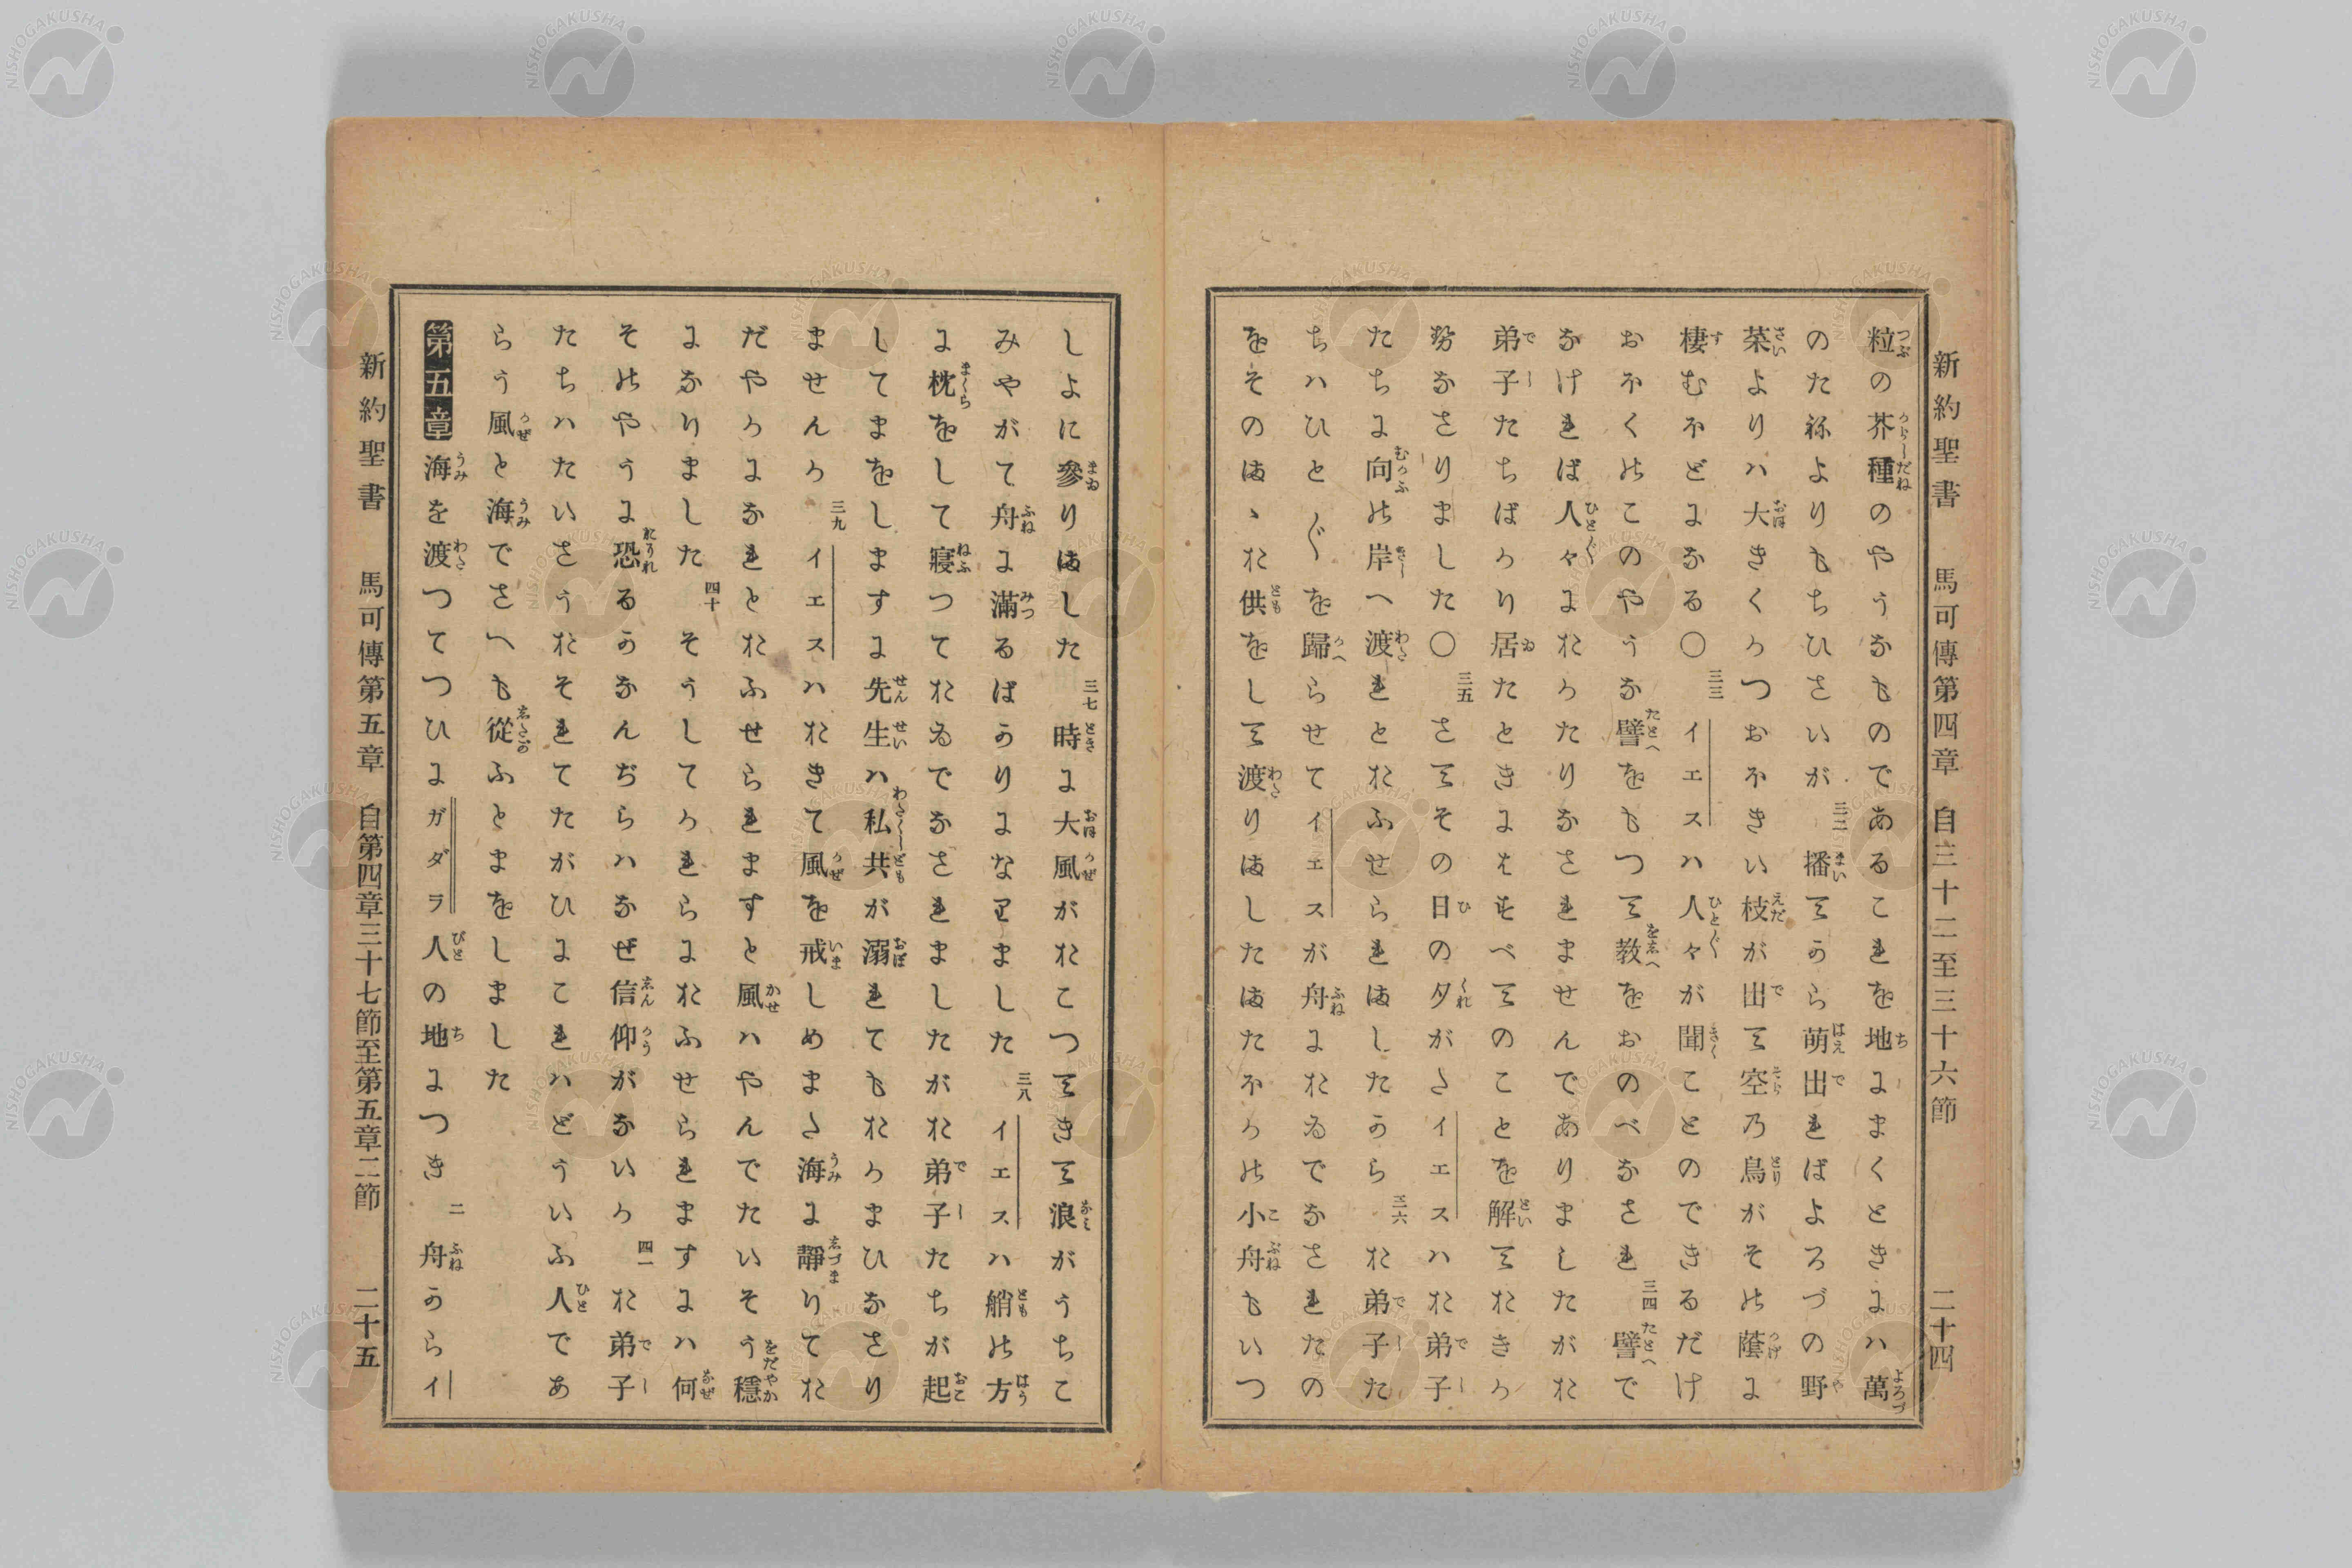 新約聖書 馬可傳第四章 自三十二至三十六節 二十四
粒の芥種のやうなものであるこれを地にまくときにハ萬
のた祢よりもちひさいが 三二 播てから萌出ればよろづの野
菜よりハ大きくかつおほきい枝が出て空乃鳥がその蔭に
棲むほどになる〇 三三 イエスハ人々が聞ことのできるだけ
おほくのこのやうな譬をもつて教をおのべなされ 三四 譬で
なければ人々におかたりなさいませんでありましたがお
弟子たちばかり居たときにはすべてのことを解ておきか
勢なさりました〇 三五 さてその日の夕がたイエスハお弟子
たちに向の岸へ渡れとおふせられました 三六 お弟子た
ちハひと〴〵を歸らせてイエスが舟におゐでなされたの
をそのまゝお供をして渡りましたまたほかの小舟もいつ
しよに參りました 三七 時に大風がおこつてきて浪がうちこ
みやがて舟に滿るばかりになりました 三八 イエスハ艄の方
に枕をして寢つておゐでなされましたがお弟子たちが起
してまをしますに先生ハ私共が溺れてもおかまひなさり
ませんか 三九 イエスハおきて風を戒しめまた海に靜りてお
だやかになれとおふせられますと風ハやんでたいそう穩
になりました 四十 そうしてかれらにおふせられますにハ何
そのやうに恐るかなんぢらハなぜ信仰がないか 四一 お弟子
たちハたいさうおそれてたがひにこれハどういふ人であ
らう風と海でさへも從ふとまをしました
第五章 海を渡つてつひにガダラ人の地につき 二 舟からイ
新約聖書 馬可傳第五章 自第四章三十七節至第五章二節 二十五